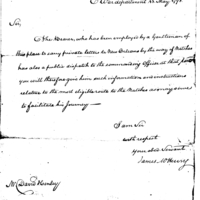 War department 22 May 1798
Sir,
The Bearer, who has been employed by a Gentleman of
this place to carry private letters to New Orleans by the way of Natchez
has also a public dispatch to the commanding Officer at that post
you will therefore give him such information and instructions
relative to the most eligible route to the Natchez as may serve to
facilitate his journey —
I am Sir
with respect
your obed Servant
James McHenry
Mr David Henley